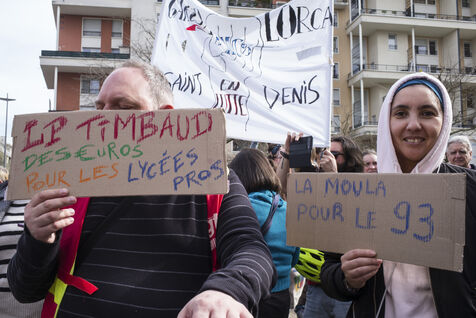 LORCA
SAINT DENIS
EN
LUTTE
LE TIMBAUD
DES €UROS
POUR LES LYCÉES
PROS
LA MOULA
POUR LE 93